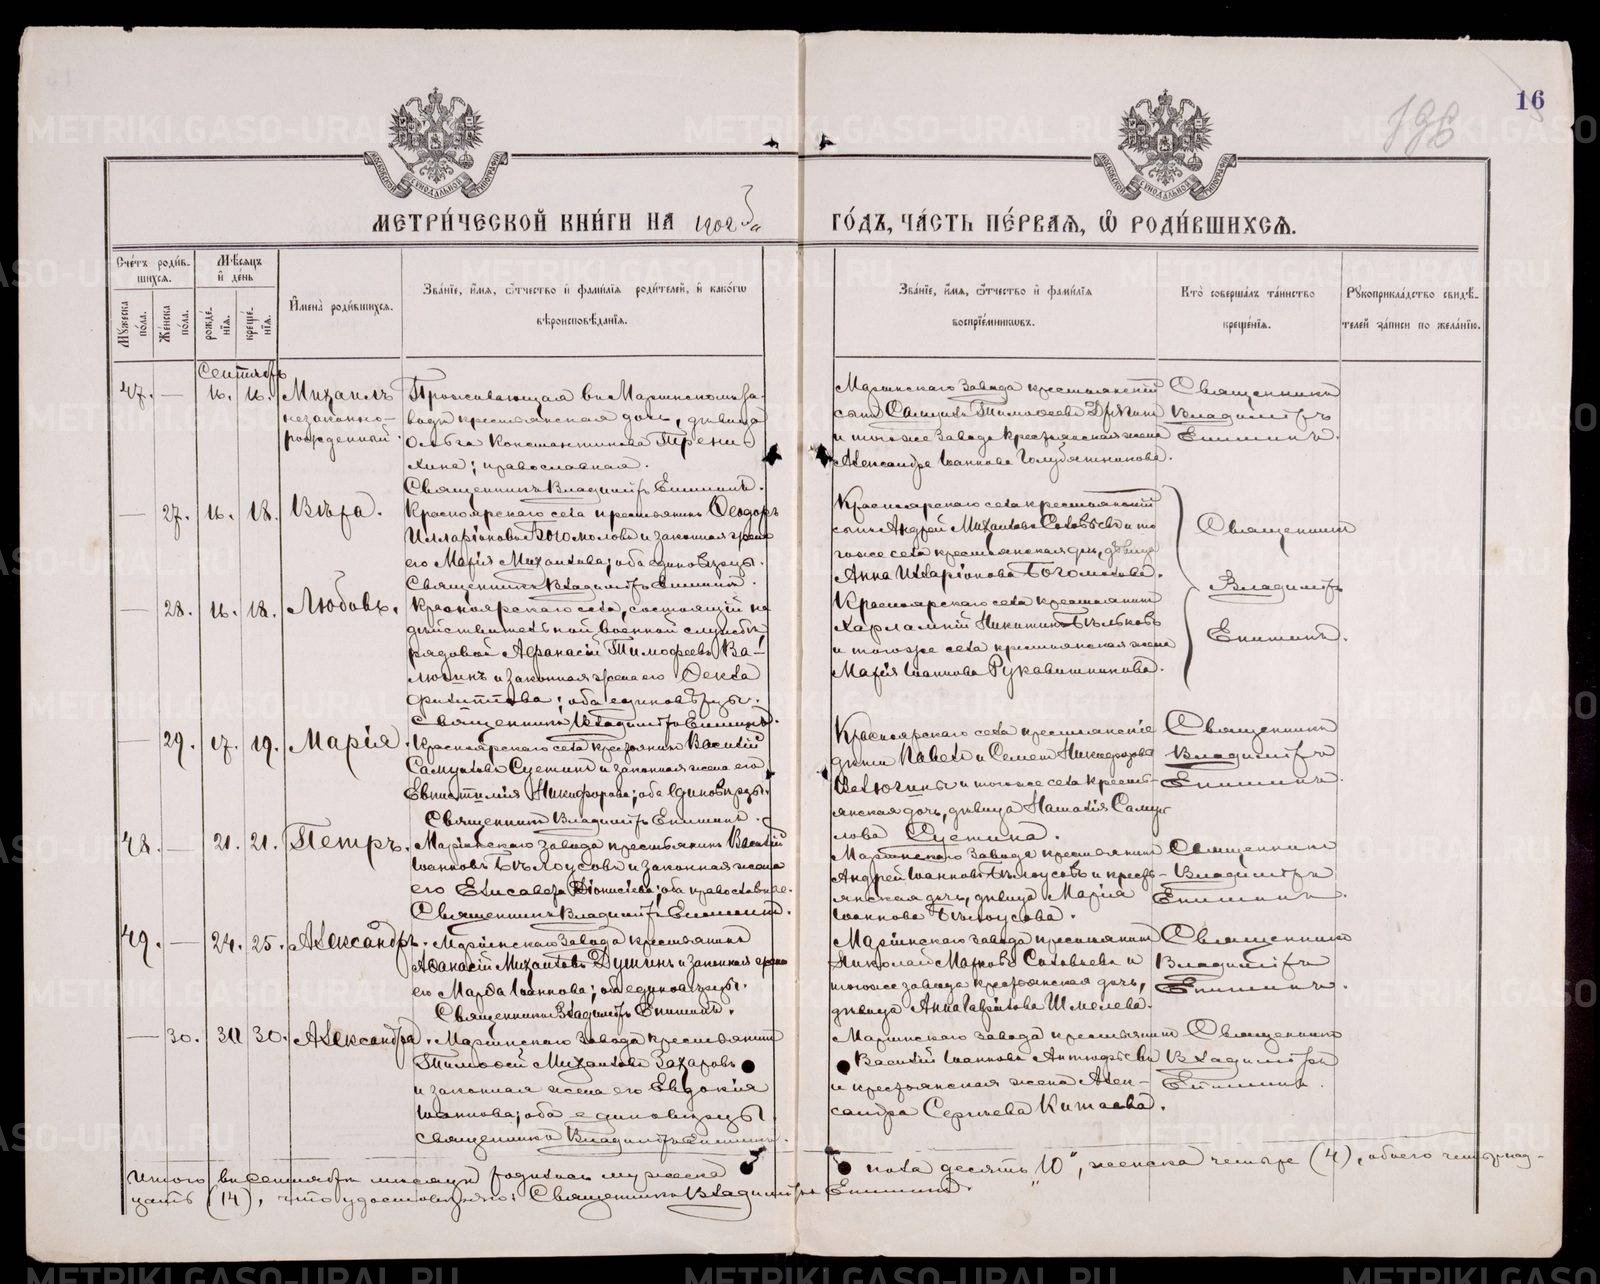 16
МЕТРИ́ЧЕСКОЙ КНИ́ГИ НА 1902
ГО́ДЪ, ЧА́СТЬ ПЕ́РВАѦ, Ѡ҆ РОДИ́ВШИХСѦ.
Сче́тъ роди́в-
шихся.
Мѣ́сяцъ
и҆ де́нь
Мꙋ́жеска
по́ла.
Же́нска
по́ла.
рожде́-
нїѧ.
креще́-
нїѧ.
И҆мена̀ роди́вшихсѧ.
Зва́нїе, и҆́мѧ, ѻ҆́тчество и҆ фами́лїѧ роди́телей, и҆ како́гѡ
вѣроисповѣ́данїѧ.
Зва́нїе, и҆́мѧ, ѻ҆́тчество и҆ фами́лїѧ
воспрїе́мникѡвъ.
Кто̀ соверша́лъ та́инство
креще́нїѧ.
Рꙋкоприкла́дство свидѣ́-
телей за́писи по жела́нїю.
Сентябрь
47. — 16. 16. Михаилъ
незаконно-
рожденный.
Проживающая въ Маріинскомъ за-
водѣ крестьянская дочь, дѣвица
Ольга Константинова Трени-
хина; православная.
Священникъ Владиміръ Епишинъ.
Маріинскаго завода крестьянскій
сынъ Тимофеевъ
и тогоже завода крестьянская жена
Александра Іоаннова Голубятникова.
Священникъ
Владиміръ
Епишинъ.
— 27. 16. 18. Вѣра.
Красноярскаго села крестьянинъ Ѳеодоръ
Илларіоновъ Богомоловъ и законная жена
его Марія Михаилова; оба единовѣрцы.
Священникъ Владиміръ Епишинъ.
Красноярскаго села крестьянскій
сынъ Андрей Михаиловъ Соловьевъ и то
гоже села крестьянская дочь, дѣвица
Анна Илларіонова Богомолова.
Священникъ
Владиміръ
Епишинъ.
— 28. 16. 18. Любовь.
Красноярскаго села, состоящій на
дѣйствительной военной службѣ
рядовой Афанасій Тимофеевъ Ва-
люгинъ и законная жена его Ѳекла
Филиппова; оба единовѣрцы.
Священникъ Владиміръ Епишинъ.
Красноярскаго села крестьянинъ
Харлампій Никитинъ Бѣльковъ
и тогоже села крестьянская жена
Марія Іоаннова Рукавишникова.
— 29. 17. 19. Марія.
Красноярскаго села крестьянинъ Василій
Самуиловъ Суетинъ и законная жена его
Евпистимія Никифорова; оба единовѣрцы.
Священникъ Владиміръ Епишинъ.
Красноярскаго села крестьянскіе
дѣти Павелъ и Семенъ Никифоровы
Валюгины и тогоже села кресть-
янская дочь, дѣвица Наталія Самуи-
лова Суетина.
Священникъ
Владиміръ
Епишинъ.
48. — 21. 21. Петръ.
Маріинскаго завода крестьянинъ Василій
Іоанновъ Бѣлоусовъ и законная жена
его Елисавета Діонисіева; оба православные.
Священникъ Владиміръ Епишинъ.
Маріинскаго завода крестьянинъ
Андрей Іоанновъ Бѣлоусовъ и кресть-
янская дочь, дѣвица Марія
Іоаннова Бѣлоусова.
Священникъ
Владиміръ
Епишинъ.
49. — 24. 25. Александръ.
Маріинскаго завода крестьянинъ
Афанасій Михаиловъ Душинъ и законная жена
его Марѳа Іоаннова; оба единовѣрцы.
Священникъ Владиміръ Епишинъ.
Маріинскаго завода крестьянинъ
Николай Марковъ Соловьевъ и
тогоже завода крестьянская дочь,
дѣвица Анна Гаврилова Шмелева.
Священникъ
Владиміръ
Епишинъ.
— 30. 30 30. Александра.
Маріинскаго завода крестьянинъ
Тимоѳей Михаиловъ Захаровъ
и законная жена его Евдокія
Іоаннова; оба единовѣрцы.
Священникъ Владиміръ Епишинъ.
Маріинскаго завода крестьянинъ
Василій Іоанновъ
и крестьянская жена Алек-
сандра Сергеева Китаева.
Священникъ
Владиміръ
Епишинъ.
Итого въ сентябрѣ мѣсяцѣ родилось мужеска пола десять „10“, женска четыре (4), обоего четырнад-
цать (14), что удостовѣряю: Священникъ Владиміръ Епишинъ.
METRIKI.GASO-URAL.RU